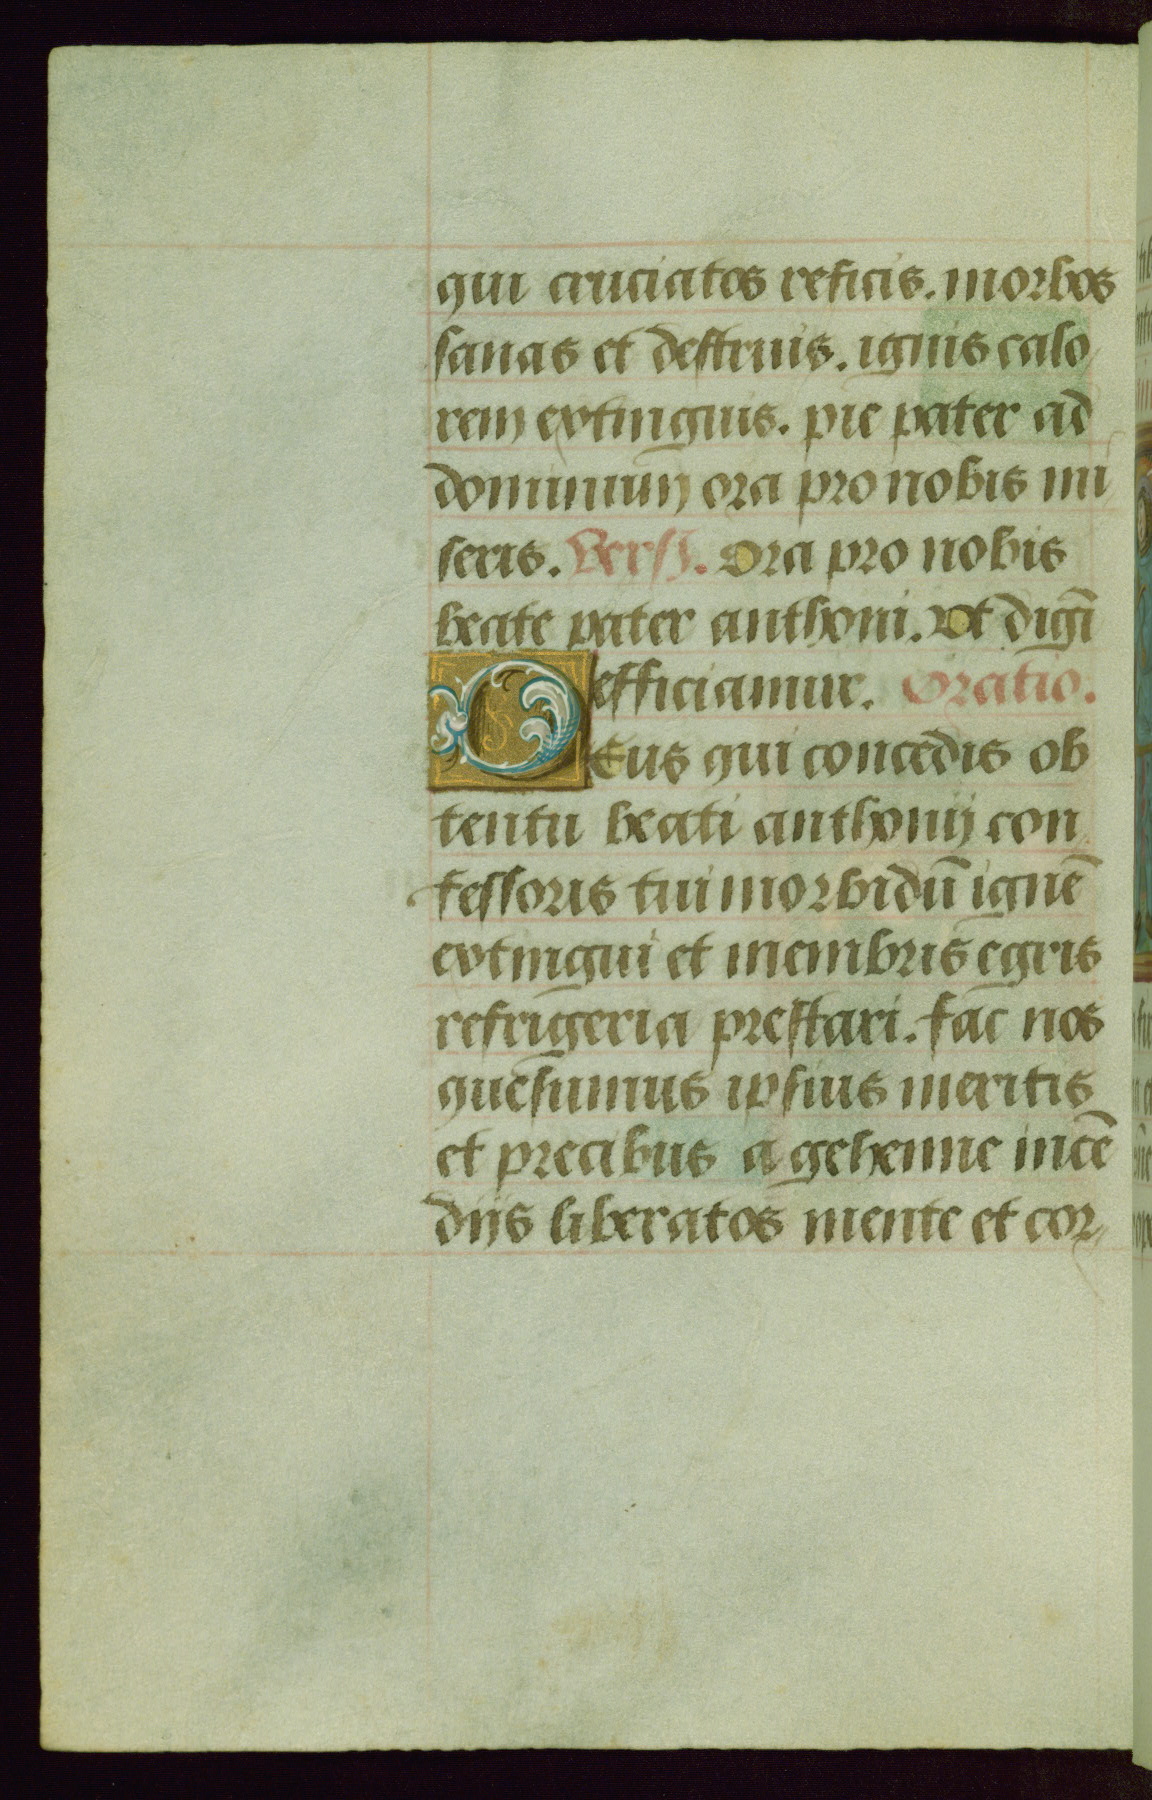 qui cruciatos reficis. morbos
sanas et destruis. ignis calo
rem extinguis. pie pater ad
dominum ora pro nobis mi
seris. Vers. Ora pro nobis
beate pater anthoni. Ut digī
efficiamur. Oratio.
Deus qui concedis ob
tentu beati anthonij con
fessoris tui morbidū ignē
extingui et membris egris
refrigeria prestari. fac nos
quesumus ipsius meritis
et precibus a gehenne incē
dijs liberatos mente et cor